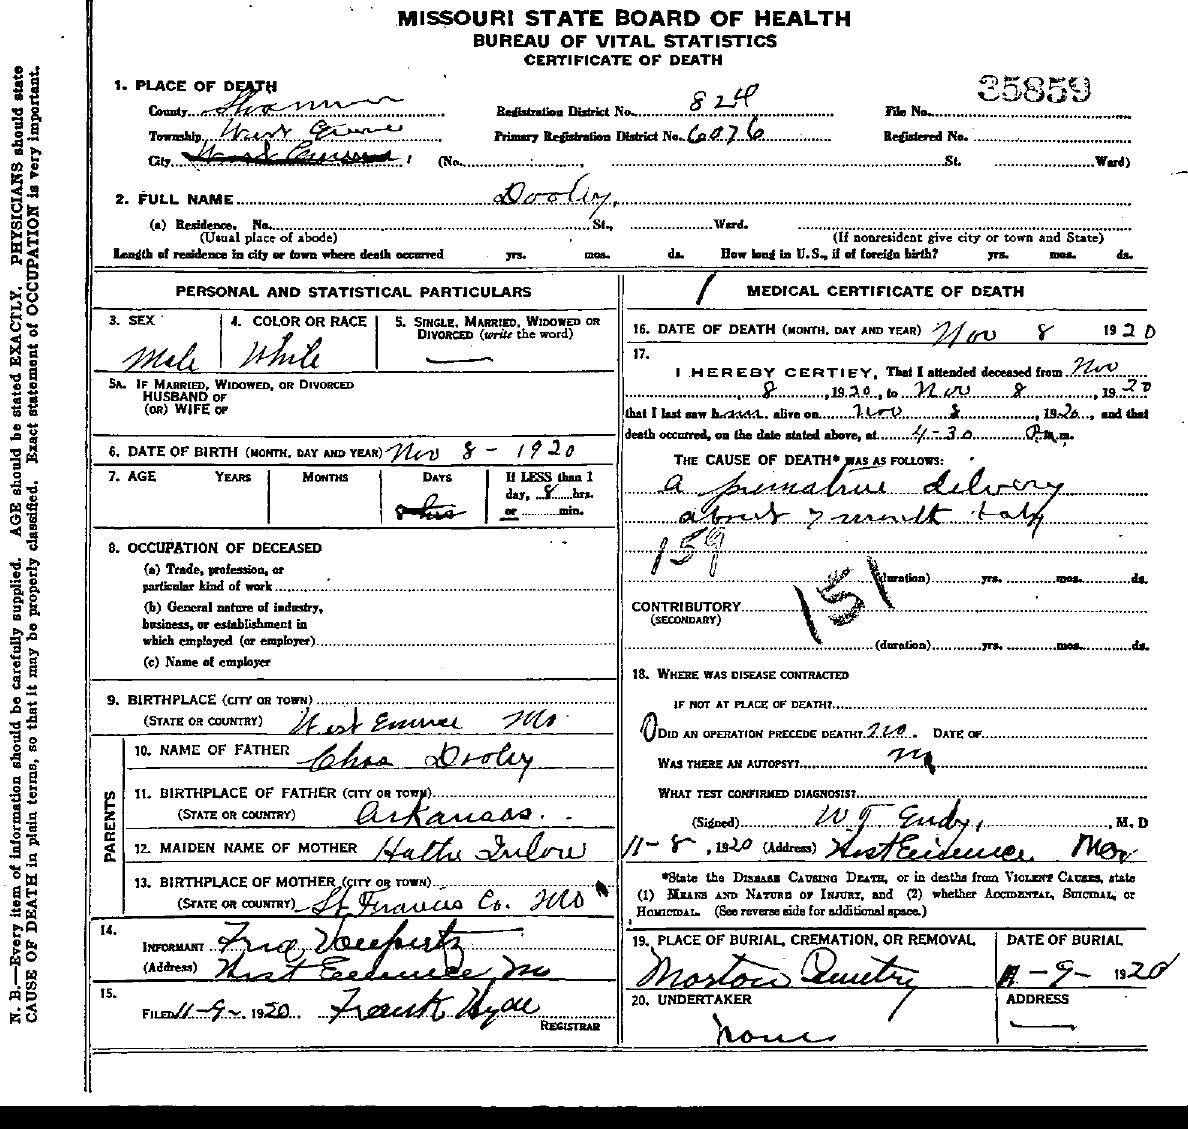 MISSOURI STATE BOARD OF HEALTH
BUREAU OF VITAL STATISTICS
CERTIFICATE OF DEATH
35859
1. PLACE OF DEATH
County Shannon Registration District No. 824 File No.
Township West Primary Registration District No. 6076 Registered No.
City (No. St. Ward)
2. FULL NAME Dooley,
(a) Residence. No. St., Ward.
(Usual place of abode) (If nonresident give city or town and State)
Length of residence in city or town where death occurred yrs. mos. ds. How long in U.S., if of foreign birth? yrs. mos. ds.
PERSONAL AND STATISTICAL PARTICULARS
3. SEX 4. COLOR OR RACE 5. SINGLE, MARRIED, WIDOWED OR DIVORCED (write the word)
Male White —
5A. IF MARRIED, WIDOWED, OR DIVORCED
HUSBAND OF
(OR) WIFE OF
6. DATE OF BIRTH (MONTH, DAY AND YEAR) Nov 8 - 1920
7. AGE YEARS MONTHS DAYS If LESS than 1
day, 8 hrs.
or min.
8. OCCUPATION OF DECEASED
(a) Trade, profession, or
particular kind of work
(b) General nature of industry,
business, or establishment in
which employed (or employer)
(c) Name of employer
9. BIRTHPLACE (CITY OR TOWN)
(STATE OR COUNTRY) West Eminence Mo
PARENTS
10. NAME OF FATHER Chas Dooley
11. BIRTHPLACE OF FATHER (CITY OR TOWN)
(STATE OR COUNTRY) Arkansas.
12. MAIDEN NAME OF MOTHER Hattie
13. BIRTHPLACE OF MOTHER (CITY OR TOWN)
(STATE OR COUNTRY) St Francis Co. Mo
14.
INFORMANT Fred
(Address) West Eminence Mo
15.
FILED 11-9-, 1920 Frank Hyde
REGISTRAR
MEDICAL CERTIFICATE OF DEATH
16. DATE OF DEATH (MONTH, DAY AND YEAR) Nov 8 1920
17.
I HEREBY CERTIFY, That I attended deceased from Nov
8, 1920, to Nov 8, 1920
that I last saw him alive on Nov 8, 1920, and that
death occurred, on the date stated above, at 4-30 P.m.
THE CAUSE OF DEATH* WAS AS FOLLOWS:
a delivery
about 7 month
159
(duration) yrs. mos. ds.
151
CONTRIBUTORY
(SECONDARY)
(duration) yrs. mos. ds.
18. WHERE WAS DISEASE CONTRACTED
IF NOT AT PLACE OF DEATH?
DID AN OPERATION PRECEDE DEATH? no. DATE OF
WAS THERE AN AUTOPSY? no
WHAT TEST CONFIRMED DIAGNOSIS?
(Signed) W T Eudy, M. D
11-8, 1920 (Address) West Eminence Mo
*State the DISEASE CAUSING DEATH, or in deaths from VIOLENT CAUSES, state
(1) MEANS AND NATURE OF INJURY, and (2) whether ACCIDENTAL, SUICIDAL, or
HOMICIDAL. (See reverse side for additional space.)
19. PLACE OF BURIAL, CREMATION, OR REMOVAL DATE OF BURIAL
11-9- 1920
20. UNDERTAKER ADDRESS
none —
N. B.—Every item of information should be carefully supplied. AGE should be stated EXACTLY. PHYSICIANS should state
CAUSE OF DEATH in plain terms, so that it may be properly classified. Exact statement of OCCUPATION is very important.